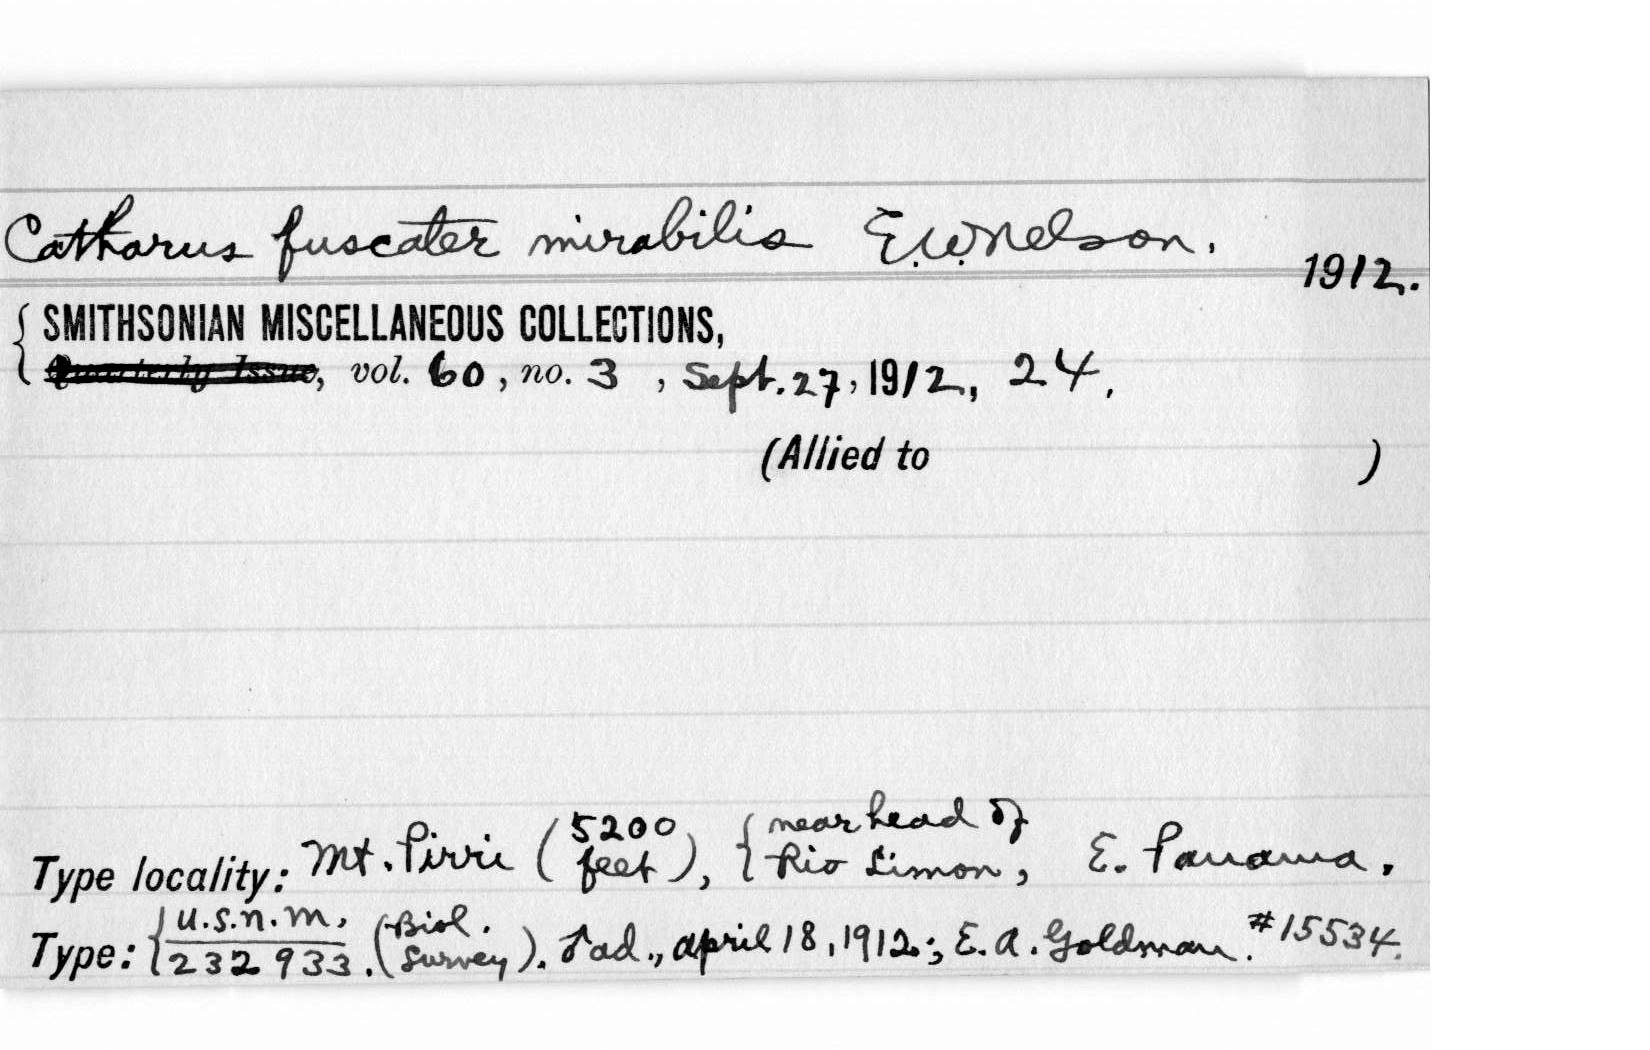 Catharus fuscater mirabilis E.W.Nelson.
1912.
{ SMITHSONIAN MISCELLANEOUS COLLECTIONS,
Quarterly Issue, vol. 60, no. 3, Sept. 27, 1912, 24.
(Allied to )
Type locality: Mt. Pirri (5200 feet), {near head of Rio Limon, E. Panama.
Type: {U.S.N.M. 232933. (Biol. Survey). ♂ad., April 18, 1912; E.A. Goldman. #15534.